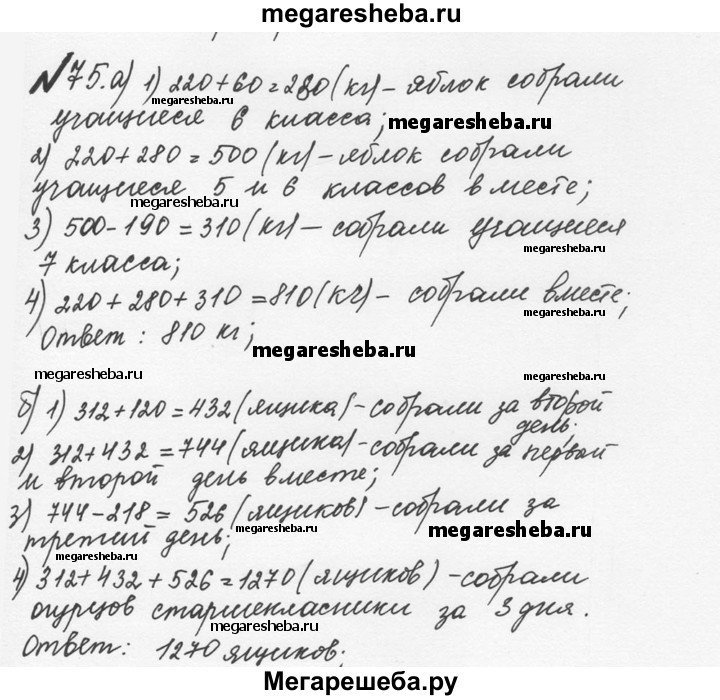 megaresheba.ru
№75.а) 1) 220+60=280(кг)-яблок собрали
megaresheba.ru
учащиеся 6 класса; megaresheba.ru
2) 220+280=500(кг)-яблок собрали
учащиеся 5 и 6 классов вместе;
megaresheba.ru
3) 500-190=310(кг)-собрали учащиеся
7 класса; megaresheba.ru
4) 220+280+310=810(кг)- собрали вместе;
megaresheba.ru
Ответ: 810 кг;
megaresheba.ru
megaresheba.ru
б) 1) 312+120=432(ящика)-собрали за второй
день;
2) 312+432=744(ящика)-собрали за первый
и второй день вместе; megaresheba.ru
3) 744-218= 526(ящиков)-собрали за
megaresheba.ru megaresheba.ru
третий день;
megaresheba.ru
4) 312+432+526=1270(ящиков)-собрали
огурцов старшекласники за 3 дня.
megaresheba.ru
Ответ: 1270 ящиков;
Мегарешеба.ру